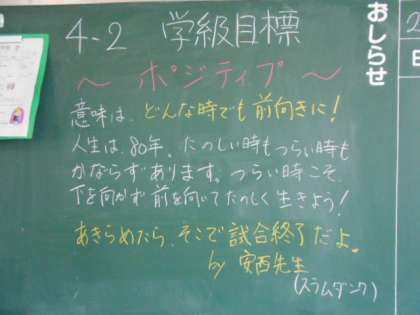 4-2 学級目標
～ポジティブ～
意味は、どんな時でも前向きに！
人生は、80年。たのしい時もつらい時も
かならずあります。つらい時こそ、
下を向かず前を向いてたのしく生きよう！
あきらめたら、そこで試合終了だよ。
by 安西先生
(スラムダンク)
おしらせ